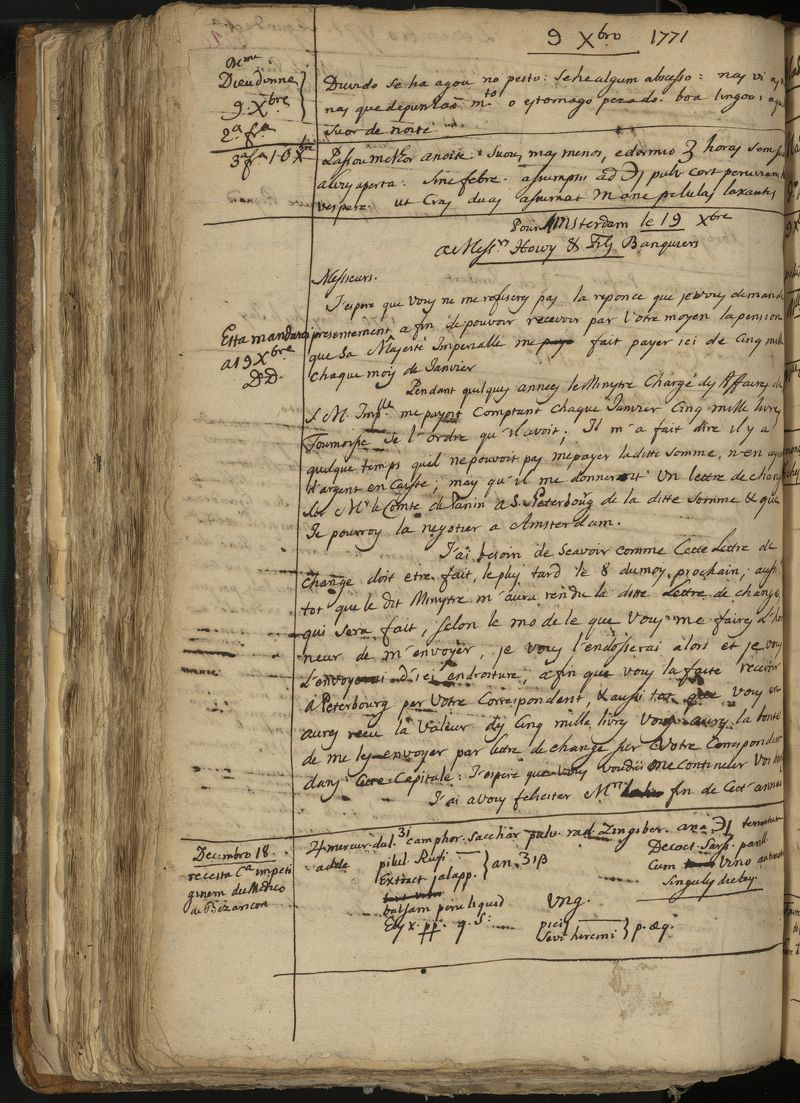 9 Xbro 1771
Dieudonne
9. Xbre
2.ª frª
3ª frª 10 Xbre
Duvido se ha agoa no peito: se he algum abscesso:
nas que depuntão mto o estomago pezado. boa lingoa:
suor de noite
Passou melhor a noite: Suou, mas menos, e dormio 3 horas
aberta: sine febre. assumpsit ad ℈j pulv Cort peruviani
vespere. ut Cras duas assumat mane pilulas laxantes
Pour Amsterdam le 19 Xbre
a Messrs Howy & Fils Banquiers
Messieurs.
Esta mandada
a 19 Xbre
J'espere que vous ne me refuserez pas la reponce que je vous demande
presentement, a fin de pouvoir recevoir par Votre moyen la pension
que Sa Majesté Imperialle me fait payer ici de Cinq mille
chaque mois de Janvier
Pendant quelques annees le Minystre Chargé des Affaires de
S. M. Imple me payoit Comptant chaque Janvier Cinq mille livres
Tournoise de l'ordre qu'il avoit; Il m'a fait dire il y a
quelque temps quil ne pouvoit pas me payer la ditte somme, n'en
d'argent en Caysse; mays qu'il me donneroit Un lettre de change
Sur Mr le Comte de Panin a S. Peterbourg de la ditte somme & que
Je pourroy la negotier a Amsterdam.
J'ai besoin de Scavoir comme Cette Lettre de
change doit etre fait, le plus tard le 8 du moy prochain; aussi
tot que le dit Minystre m'aura rendu la ditte Lettre de change,
qui sera fait, selon le modele que Vous me faires l'ho
neur de m'envoyer, je vous l'endosserai alors et je vous
L'envoyerai d'ici en droiture, a fin que vous la faite recevoir
à Peterbourg par Votre Correspondent, & aussi tot que Vous en
aures recu la Valeur des Cinq mille livres Vous aures la bonté
de me les envoyer par lettre de change sur Votre Correspondent
dans Cette Capitale: J'espere que vous voudres me Continuer Vos
J'ai a vous feliciter fin de Cett' année
Decembro 18.
receita Cª impeti
ginem du Medico
de Bezancon
♃ mercur. dul. ʒi camphor. Sacchar pulv. rad. Zingiber. ana ℈j
adde pilul. Rufi
Extract jalapp. } an. ʒiβ
balsam peru liquid
Elyx. pp. q. S.
Decoct. Sars. parill.
Cum Vino
Singulis diebus.
Ung.
picis
Sevi hircini } p. æq.